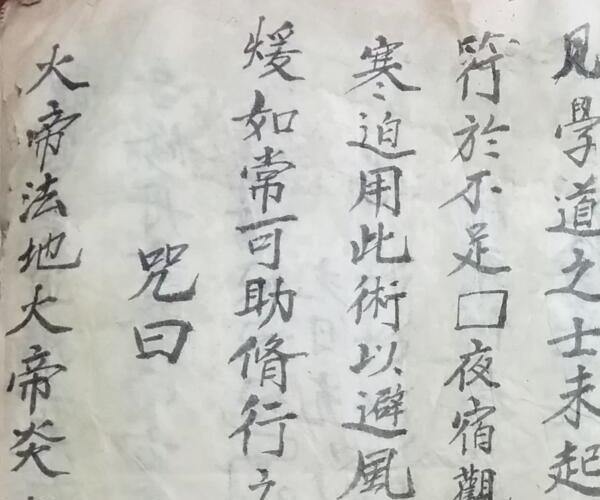 見學道之士未起
符於不足□夜宿觀
寒迫用此術以避風
煖如常可助脩行
咒曰
火帝法地大帝炎